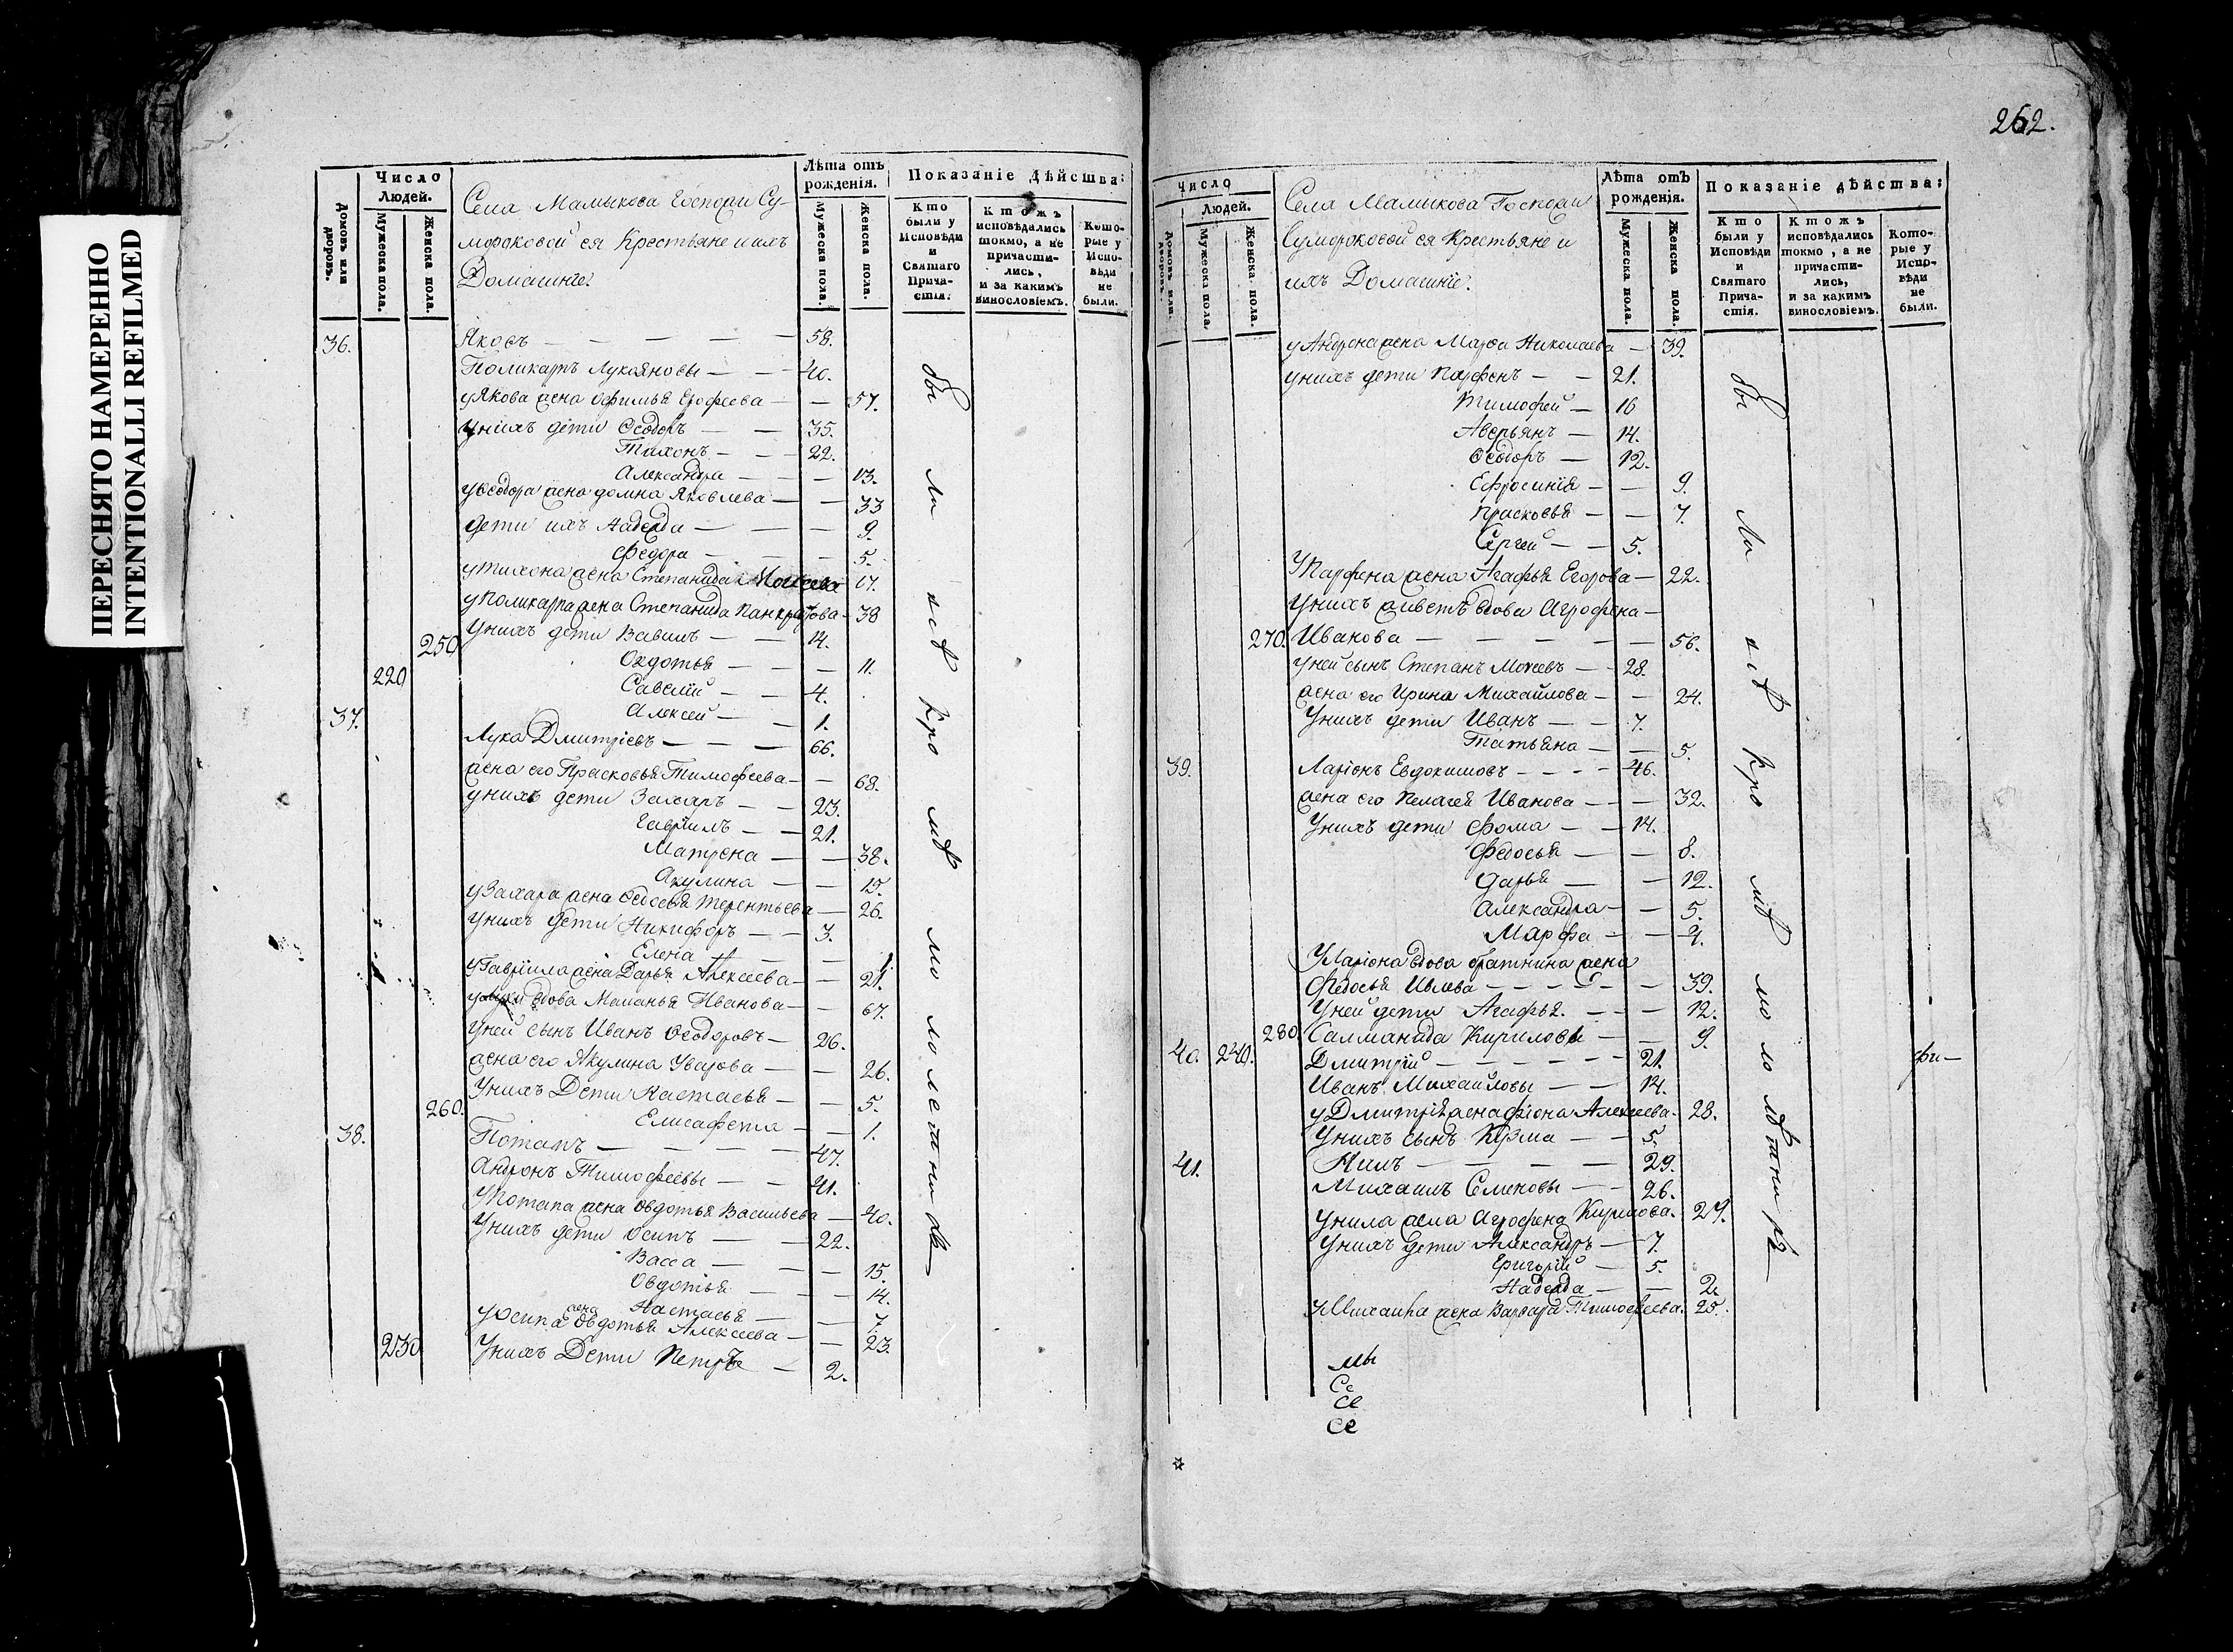 ПЕРЕСНЯТО НАМЕРЕННО
INTENTIONALLI REFILMED
Число Людей.
Домовъ или дворовъ.
Мужеска пола.
Женска пола.
Села Мамыкова Госпожи Су-
мороковой ея Крестьяне и ихъ
Домашніе.
Лѣта отъ рожденія.
Мужеска пола.
Женска пола.
Показаніе дѣйства:
Кто были у Исповѣди и Святаго Прича-стія.
Ктожъ исповѣдались токмо, а не причасти-лись, и за какимъ винословіемъ.
Кото-рые у Испо-вѣди не были.
36. Яковъ — 58.
Поликарпъ Лукояновы — 40.
у Якова жена Офимья Ерофеева — 57.
у нихъ дети Ѳедоръ — 35.
Тихонъ — 22.
Александра — 13.
у Ѳедора жена Домна Яковлева — 33
дети ихъ Надежда — 9.
Федора — 5.
у Тихона жена Степанида Мосеева 17.
у Поликарпа жена Степанида Панкратова — 38
250 у нихъ дети Вавилъ — 14.
Овдотья — 11.
220 Савелій — 4.
Алексей — 1.
37. Лука Дмитріевъ — 66.
жена его Прасковья Тимофеева — 68.
у нихъ дети Захаръ — 23.
Гаврiилъ — 21.
Матрена — 38.
Акулина — 15.
у Захара жена Ѳедосья Терентьева — 26.
у нихъ дети Никифоръ — 3.
Елена — 1.
у Гаврiила жена Дарья Алексеева — 21.
у Луки вдова Маланья Иванова — 67.
у ней сынъ Иванъ Ѳеодоровъ — 26.
жена его Акулина Уварова — 26.
у нихъ Дети Настасья — 5.
260. Елисафета — 1.
38. Потапъ — 47.
Андронъ Тимофеевы — 41.
у Потапа жена Овдотья Васильева — 40.
у нихъ дети Осипъ — 22.
Васса — 15.
Овдотья — 14.
Настасья — 7.
у Осипа жена Овдотья Алексеева — 23.
230 у нихъ Дети Петръ — 2.
бы ли всѣ кро мѣ мо ло летни ковъ
262.
Число Людей.
Домовъ или дворовъ.
Мужеска пола.
Женска пола.
Села Мамыкова Госпожи
Сумороковой ея Крестьяне и
ихъ Домашніе.
Лѣта отъ рожденія.
Мужеска пола.
Женска пола.
Показаніе дѣйства:
Кто были у Исповѣди и Святаго Прича-стія.
Ктожъ исповѣдались токмо, а не причасти-лись, и за какимъ винословіемъ.
Кото-рые у Испо-вѣди не были.
у Андрона жена Марѳа Николаева — 39.
у нихъ дети Парфенъ — 21.
Тимофей — 16
Аверьянъ — 14.
Ѳеодоръ — 12.
Ефросинія — 9.
Прасковья — 7.
Сергей — 5.
у Парфена жена Агафья Егорова — 22.
у нихъ живетъ вдова Агрофена —
270. Иванова — 56.
у ней сынъ Степанъ Мосеевъ — 28.
жена его Ирина Михайлова — 24.
у нихъ дети Иванъ — 7.
Татьяна — 5.
39. Ларіонъ Евдокимовъ — 46.
жена его Пелагея Иванова — 32.
у нихъ дети Фома — 14.
Федосья — 8.
Дарья — 12.
Александра — 5.
Марфа — 4.
у Ларіона вдова братнина жена
Федосья Ивлева — 39.
у ней дети Агафья. — 12.
280 Салманида Кириловы — 9.
40. 240. Дмитрій — 21.
Иванъ Михайловы — 14.
у Дмитрія жена Фіона Алексеева. 28.
у нихъ сынъ Кузма — 5.
41. Нилъ — 29.
Михаилъ Семеновы — 26.
у Нила жена Агрофена Кирилова. 29.
у нихъ дети Александръ — 7.
Григорій — 5.
Надежда — 2.
у Михаила жена Варвара Тимофеева. 25.
бы ли всѣ кро мѣ мо ло лѣтни ковъ
мы
Се
Се
Се